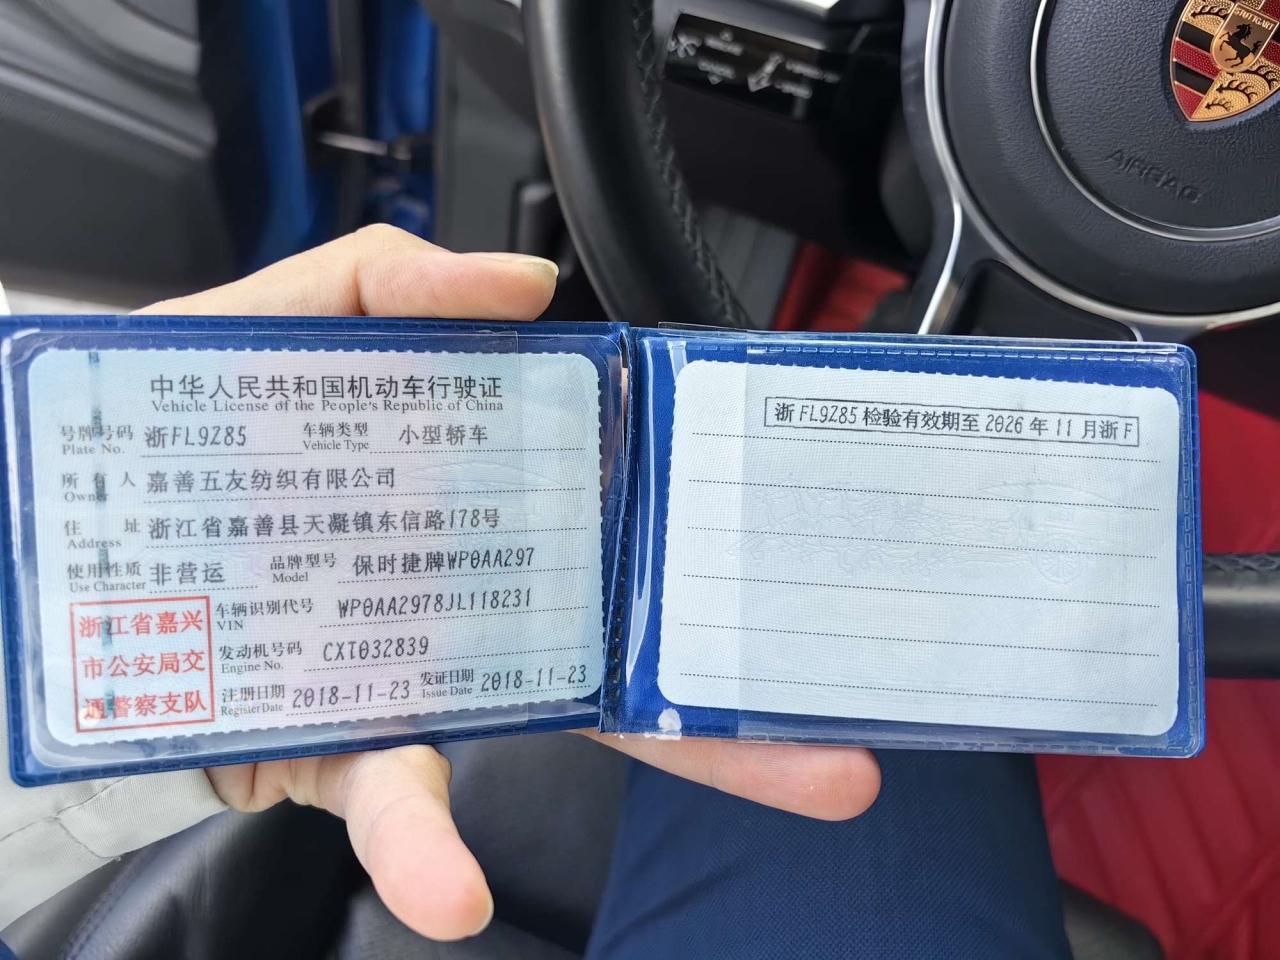 STUTTGART
AIRBAG
中华人民共和国机动车行驶证
Vehicle License of the People's Republic of China
号牌号码 浙FL9Z85 车辆类型 小型轿车
Plate No. Vehicle Type
所有人 嘉善五友纺织有限公司
Owner
住址 浙江省嘉善县天凝镇东信路178号
Address
使用性质 非营运 品牌型号 保时捷牌WP0AA297
Use Character Model
浙江省嘉兴
市公安局交
通警察支队
车辆识别代号 WP0AA2978JL118231
VIN
发动机号码 CXT032839
Engine No.
注册日期 2018-11-23 发证日期 2018-11-23
Register Date Issue Date
浙FL9Z85 检验有效期至 2026 年 11 月浙F